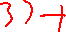 3) +